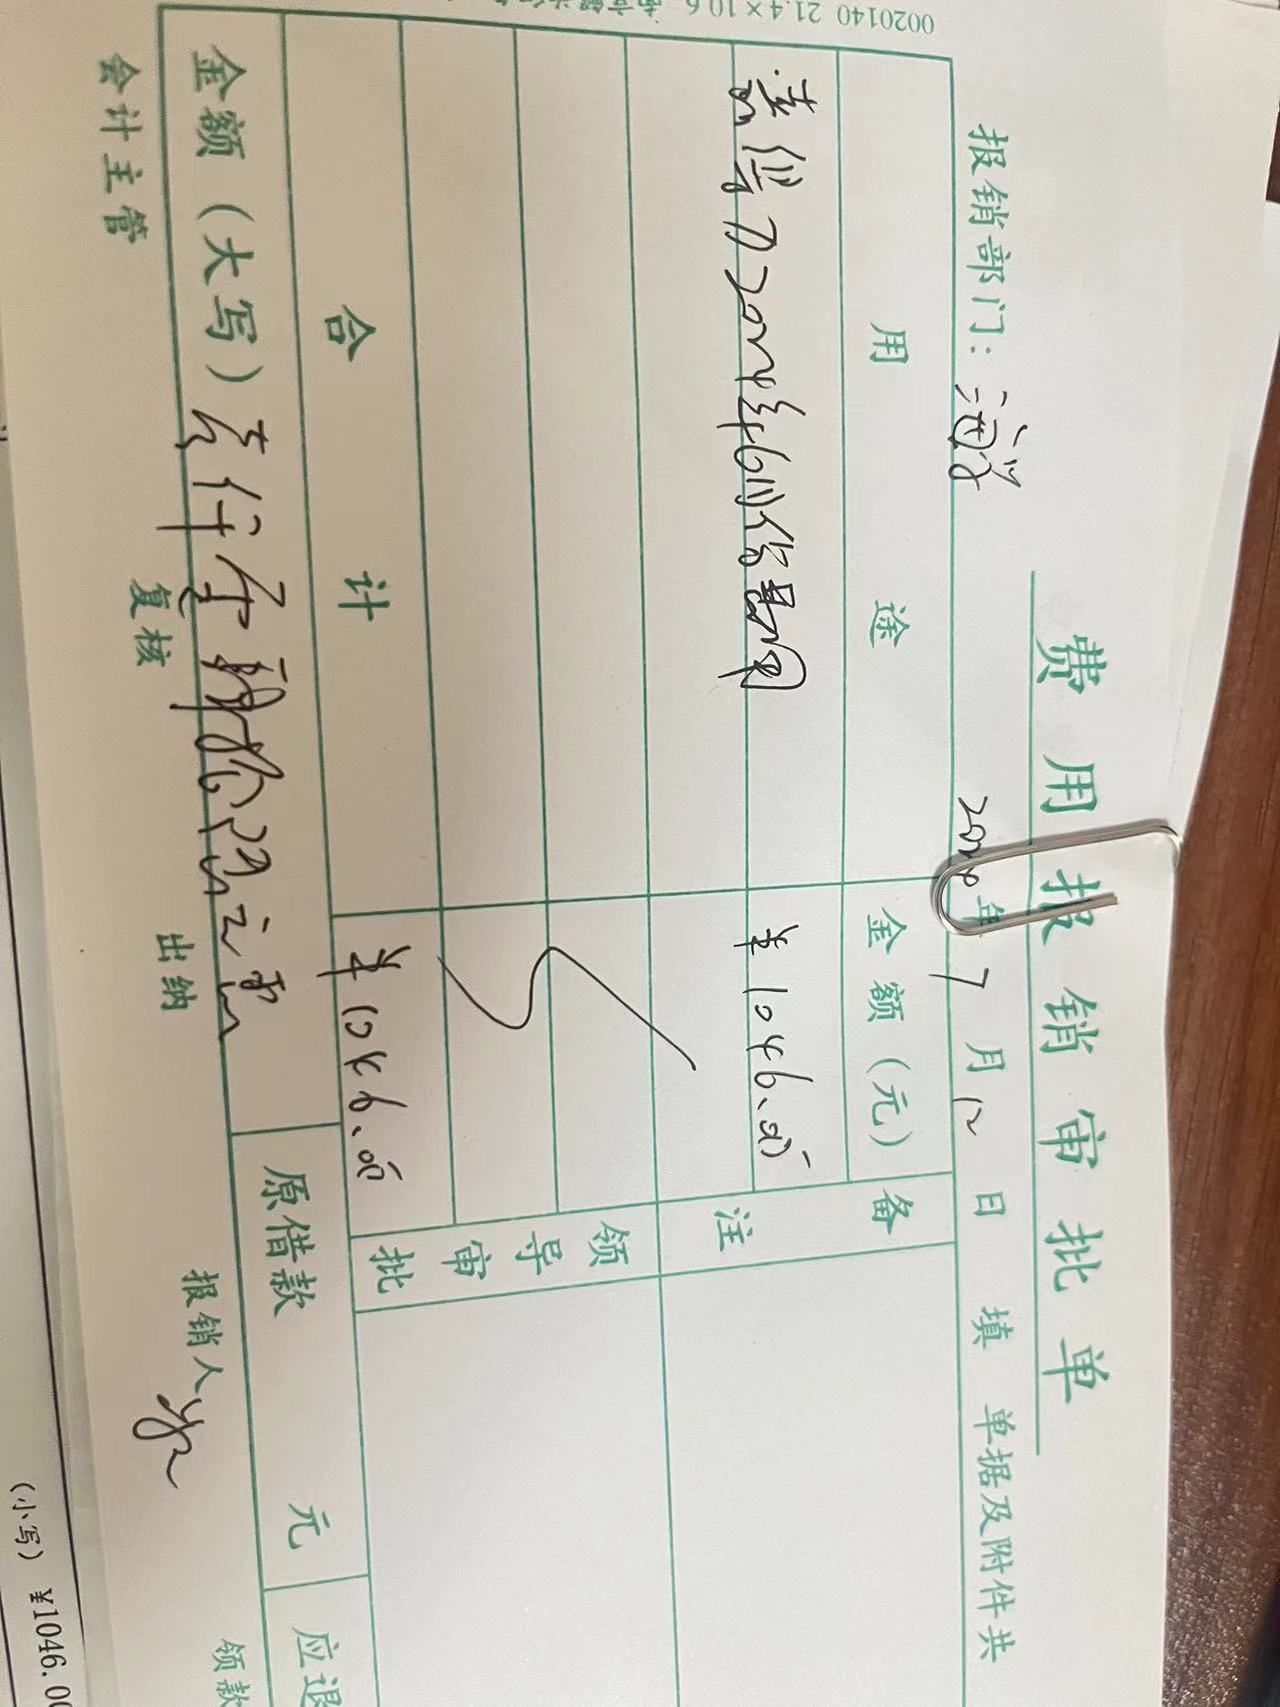 费用报销审批单
报销部门：
2024年7月12日填 单据及附件共
用途 金额（元） 备注
2024年6月 ¥1046.00
领导审批
合计 ¥1046.00
金额（大写）壹仟零肆拾陆元整 原借款 元 应退
会计主管 复核 出纳 报销人 领款
0020140 21.4×10.6
（小写） ¥1046.00